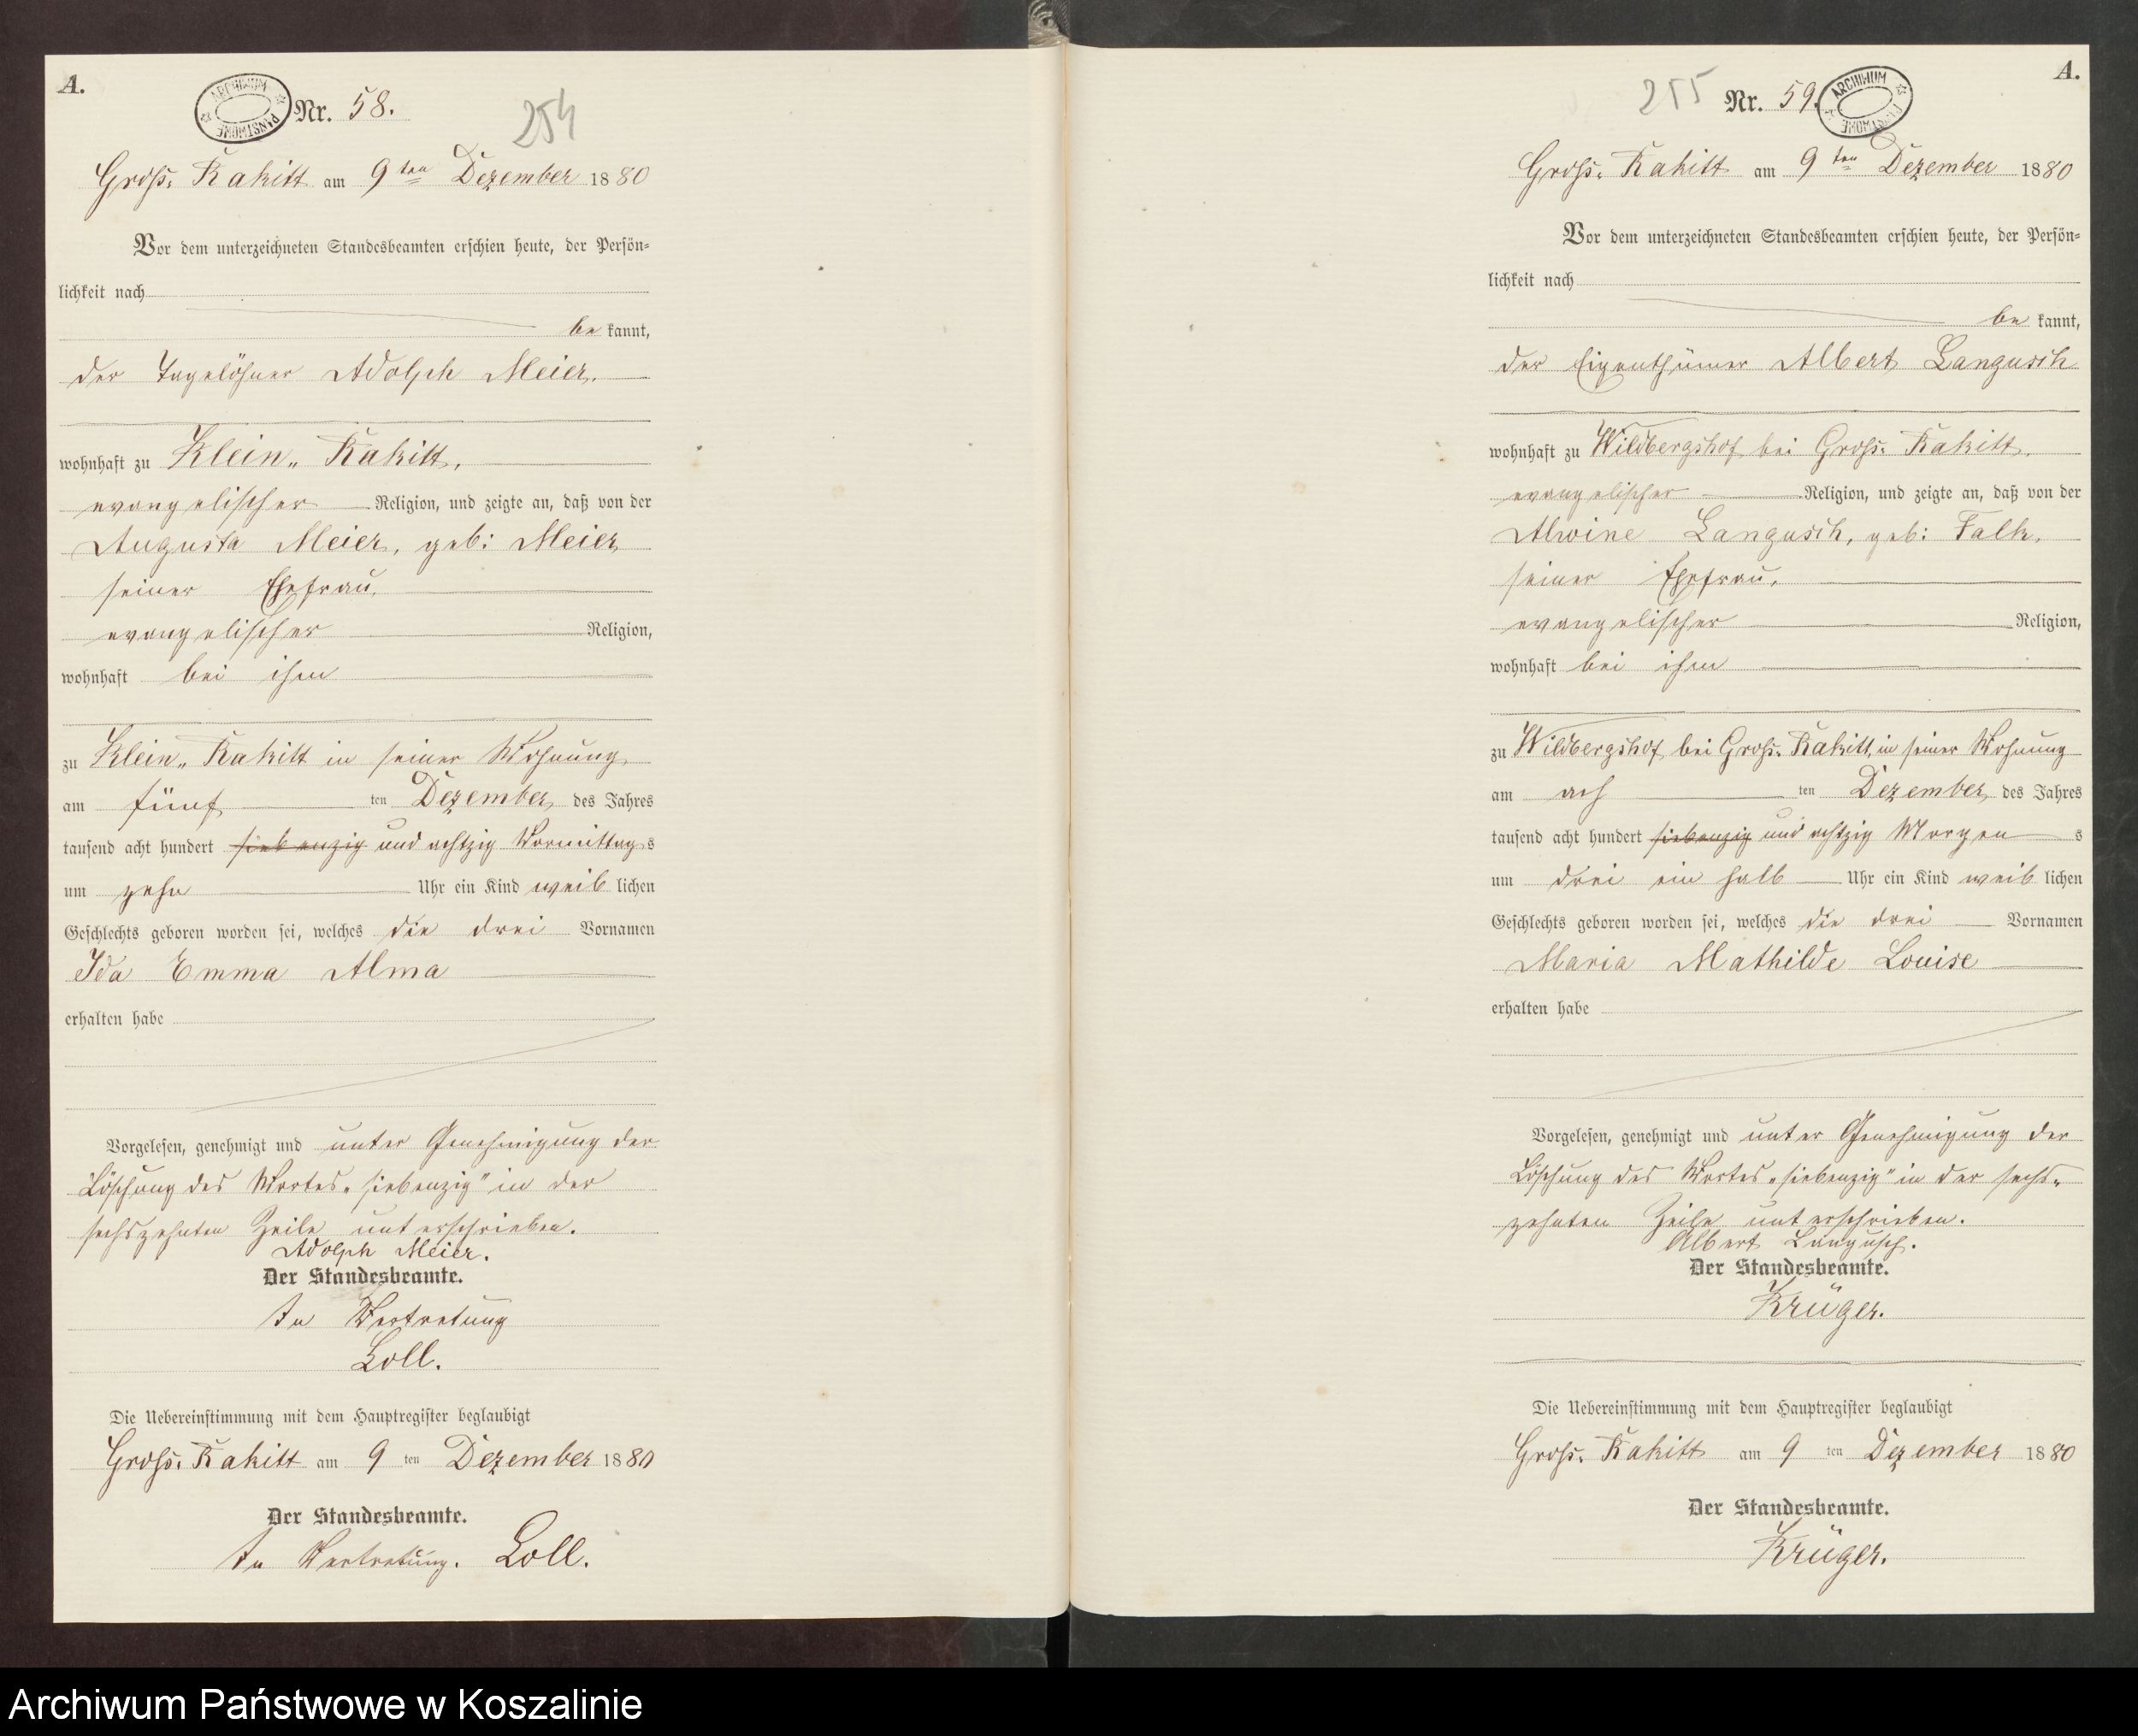 A.
ARCHIWUM PAŃSTWOWE
Nr. 58.
254
Gross. Rakitt am 9ten Dezember 1880
Vor dem unterzeichneten Standesbeamten erschien heute, der Persön-
lichkeit nach
be kannt,
der Tagelöhner Adolph Meier.
wohnhaft zu Klein„ Rakitt,
evangelischer Religion, und zeigte an, daß von der
Augusta Meier, geb: Meier
seiner Ehefrau,
evangelischer Religion,
wohnhaft bei ihm
zu Klein„ Rakitt in seiner Wohnung
am fünf ten Dezember des Jahres
tausend acht hundert siebenzig und achtzig Vormittag s
um zehn Uhr ein Kind weib lichen
Geschlechts geboren worden sei, welches die drei Vornamen
Ida Emma Alma
erhalten habe
Vorgelesen, genehmigt und unter Genehmigung der
Löschung des Wortes „siebenzig" in der
sechszehnten Zeile unterschrieben.
Adolph Meier.
Der Standesbeamte.
In Vertretung
Loll.
Die Uebereinstimmung mit dem Hauptregister beglaubigt
Gross. Rakitt am 9 ten Dezember 1880
Der Standesbeamte.
In Vertretung. Loll.
A.
255
Nr. 59.
ARCHIWUM PAŃSTWOWE
Gross. Rakitt am 9ten Dezember 1880
Vor dem unterzeichneten Standesbeamten erschien heute, der Persön-
lichkeit nach
be kannt,
der Eigenthümer Albert Langusch
wohnhaft zu Wildbergshof bei Gross. Rakitt.
evangelischer Religion, und zeigte an, daß von der
Alwine Langusch, geb: Falk,
seiner Ehefrau,
evangelischer Religion,
wohnhaft bei ihm
zu Wildbergshof bei Gross. Rakitt, in seiner Wohnung
am ach ten Dezember des Jahres
tausend acht hundert siebenzig und achtzig Morgen s
um drei ein halb Uhr ein Kind weib lichen
Geschlechts geboren worden sei, welches die drei Vornamen
Maria Mathilde Louise
erhalten habe
Vorgelesen, genehmigt und unter Genehmigung der
Löschung des Wortes „siebenzig" in der sechs„
zehnten Zeile unterschrieben.
Albert Langusch.
Der Standesbeamte.
Krüger.
Die Uebereinstimmung mit dem Hauptregister beglaubigt
Gross. Rakitt am 9 ten Dezember 1880
Der Standesbeamte.
Krüger.
Archiwum Państwowe w Koszalinie